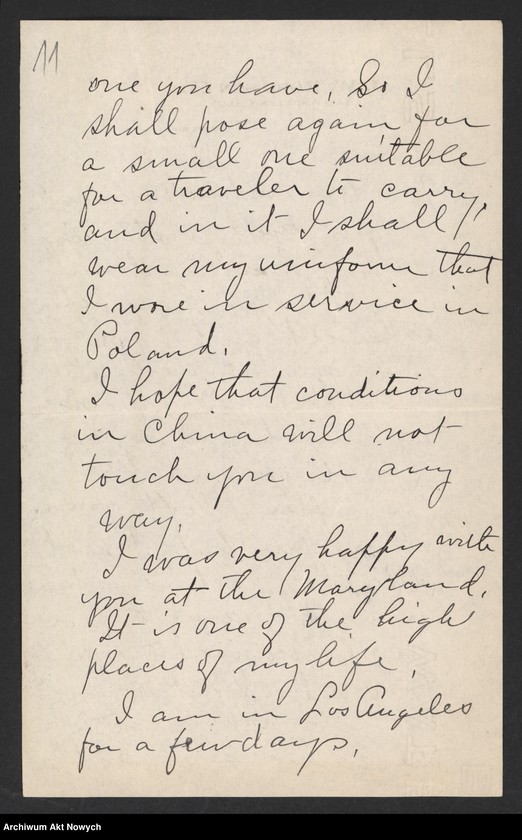 11
one you have, So I
shall pose again, for
a small one suitable
for a traveler to carry,
and in it I shall
wear my uniform that
I wore in service in
Poland.
I hope that conditions
in China will not
touch you in any
way.
I was very happy with
you at the Maryland.
It is one of the high
places of my life.
I am in Los Angeles
for a few days.
Archiwum Akt Nowych